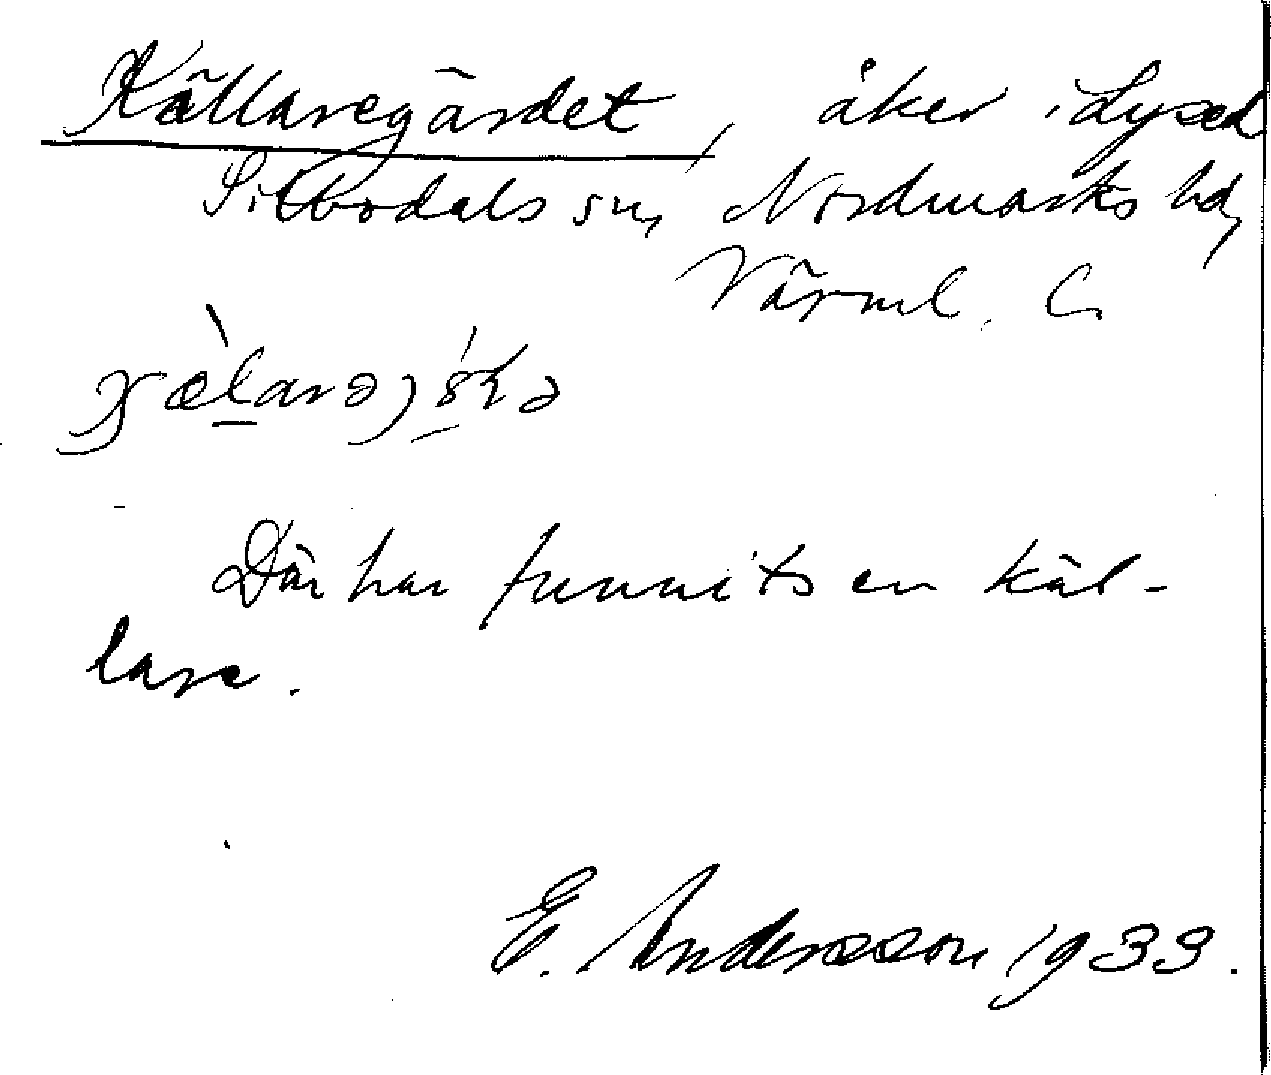 Källaregärdet, åker i Lysed
Silbodals sn, Nordmarks hd,
Värml. l.
Där har funnits en käl-
lare.
E. Andersson 1933.